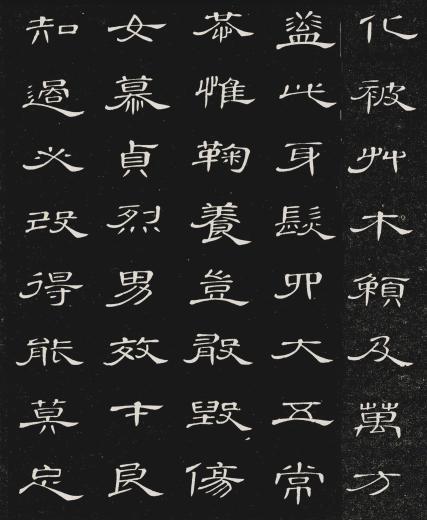 化被艸木賴及萬方
蓋此身髮四大五常
恭惟鞠養豈敢毀傷
女慕貞烈男效才良
知過必改得能莫忘